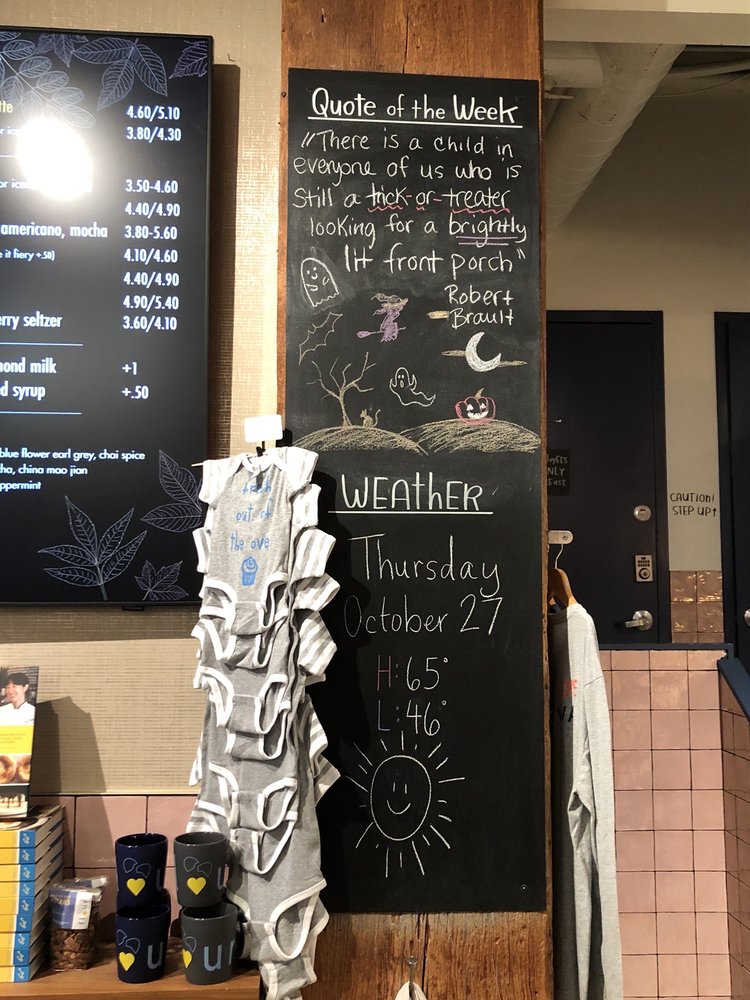 4.60/5.10
3.80/4.30
3.50-4.60
4.40/4.90
americano, mocha 3.80-5.60
4.10/4.60
4.40/4.90
4.90/5.40
seltzer 3.60/4.10
milk +1
syrup +.50
blue flower earl grey, chai spice
china mao jian
Quote of the Week
"There is a child in
everyone of us who is
still a trick-or-treater
looking for a brightly
lit front porch"
Robert
Brault
WEATHER
Thursday
October 27
H: 65°
L: 46°
fresh
out of
the ove
CAUTION!
STEP UP↑